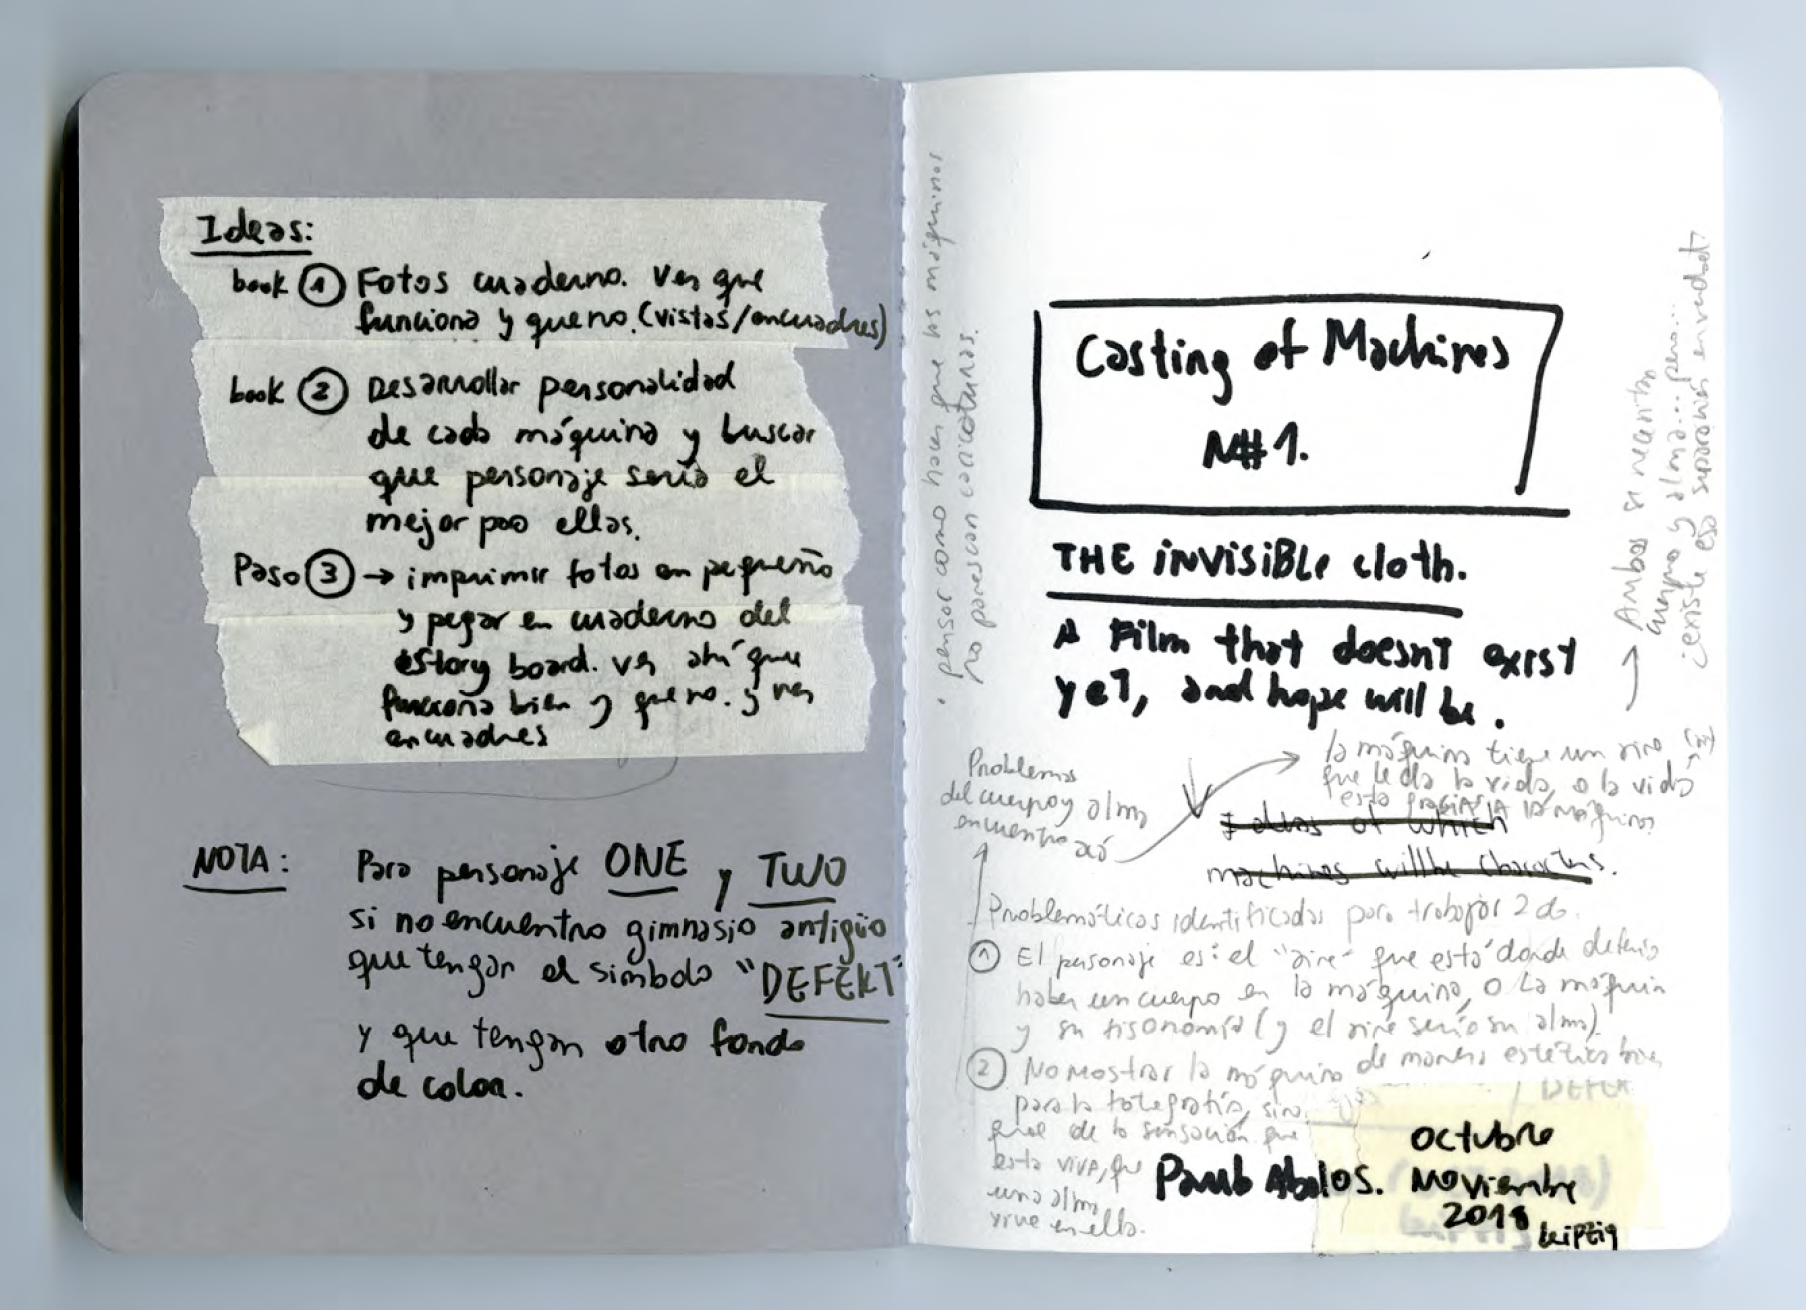 Ideas:
book ① Fotos cuaderno. Ver que
funciona y que no. (vistas/encuadres)
book ② Desarrollar personalidad
de cada máquina y buscar
que personaje sería el
mejor pa ellas.
Paso ③ → imprimir fotos en pequeño
y pegar en cuaderno del
story board. ver ahí que
funciona bien y que no. y ver
encuadres
NOTA: Para personaje ONE y TWO
si no encuentro gimnasio antigüo
que tengan el simbolo "DEFEKT"
y que tengan otro fondo
de color.
· pensar como hacer que las máquinas
no parezcan caricaturas.
Casting of Machines
N#1.
THE inVISIBLe cloth.
A Film that doesnt exist
yet, and hope will be.
→ Ambos se necesitan
cuerpo y alma... pero...
¿existe esa separación en verdad?
Problemas
del cuerpo y alma
encuentro acá
la máquina tiene un aire
que le da la vida, o la vida
esta gracias a la máquina
Ideas of which
machines will be characters.
Problemáticas identificadas para trabajar 2 do.
① El personaje es: el "aire" que está donde debería
haber un cuerpo en la máquina, o la máquina
y su fisonomía (y el aire sería su alma).
② No mostrar la máquina de manera estética bien
para la fotografía, sino
que de la sensación que
esta viva, que
una alma
vive en ella.
DEFEK
Paub Abalos.
octubre
Noviembre
2018
Leipzig